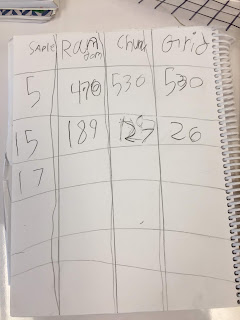 SAPlE Random Chunk Grid
5 470 530 530
15 189 26
17